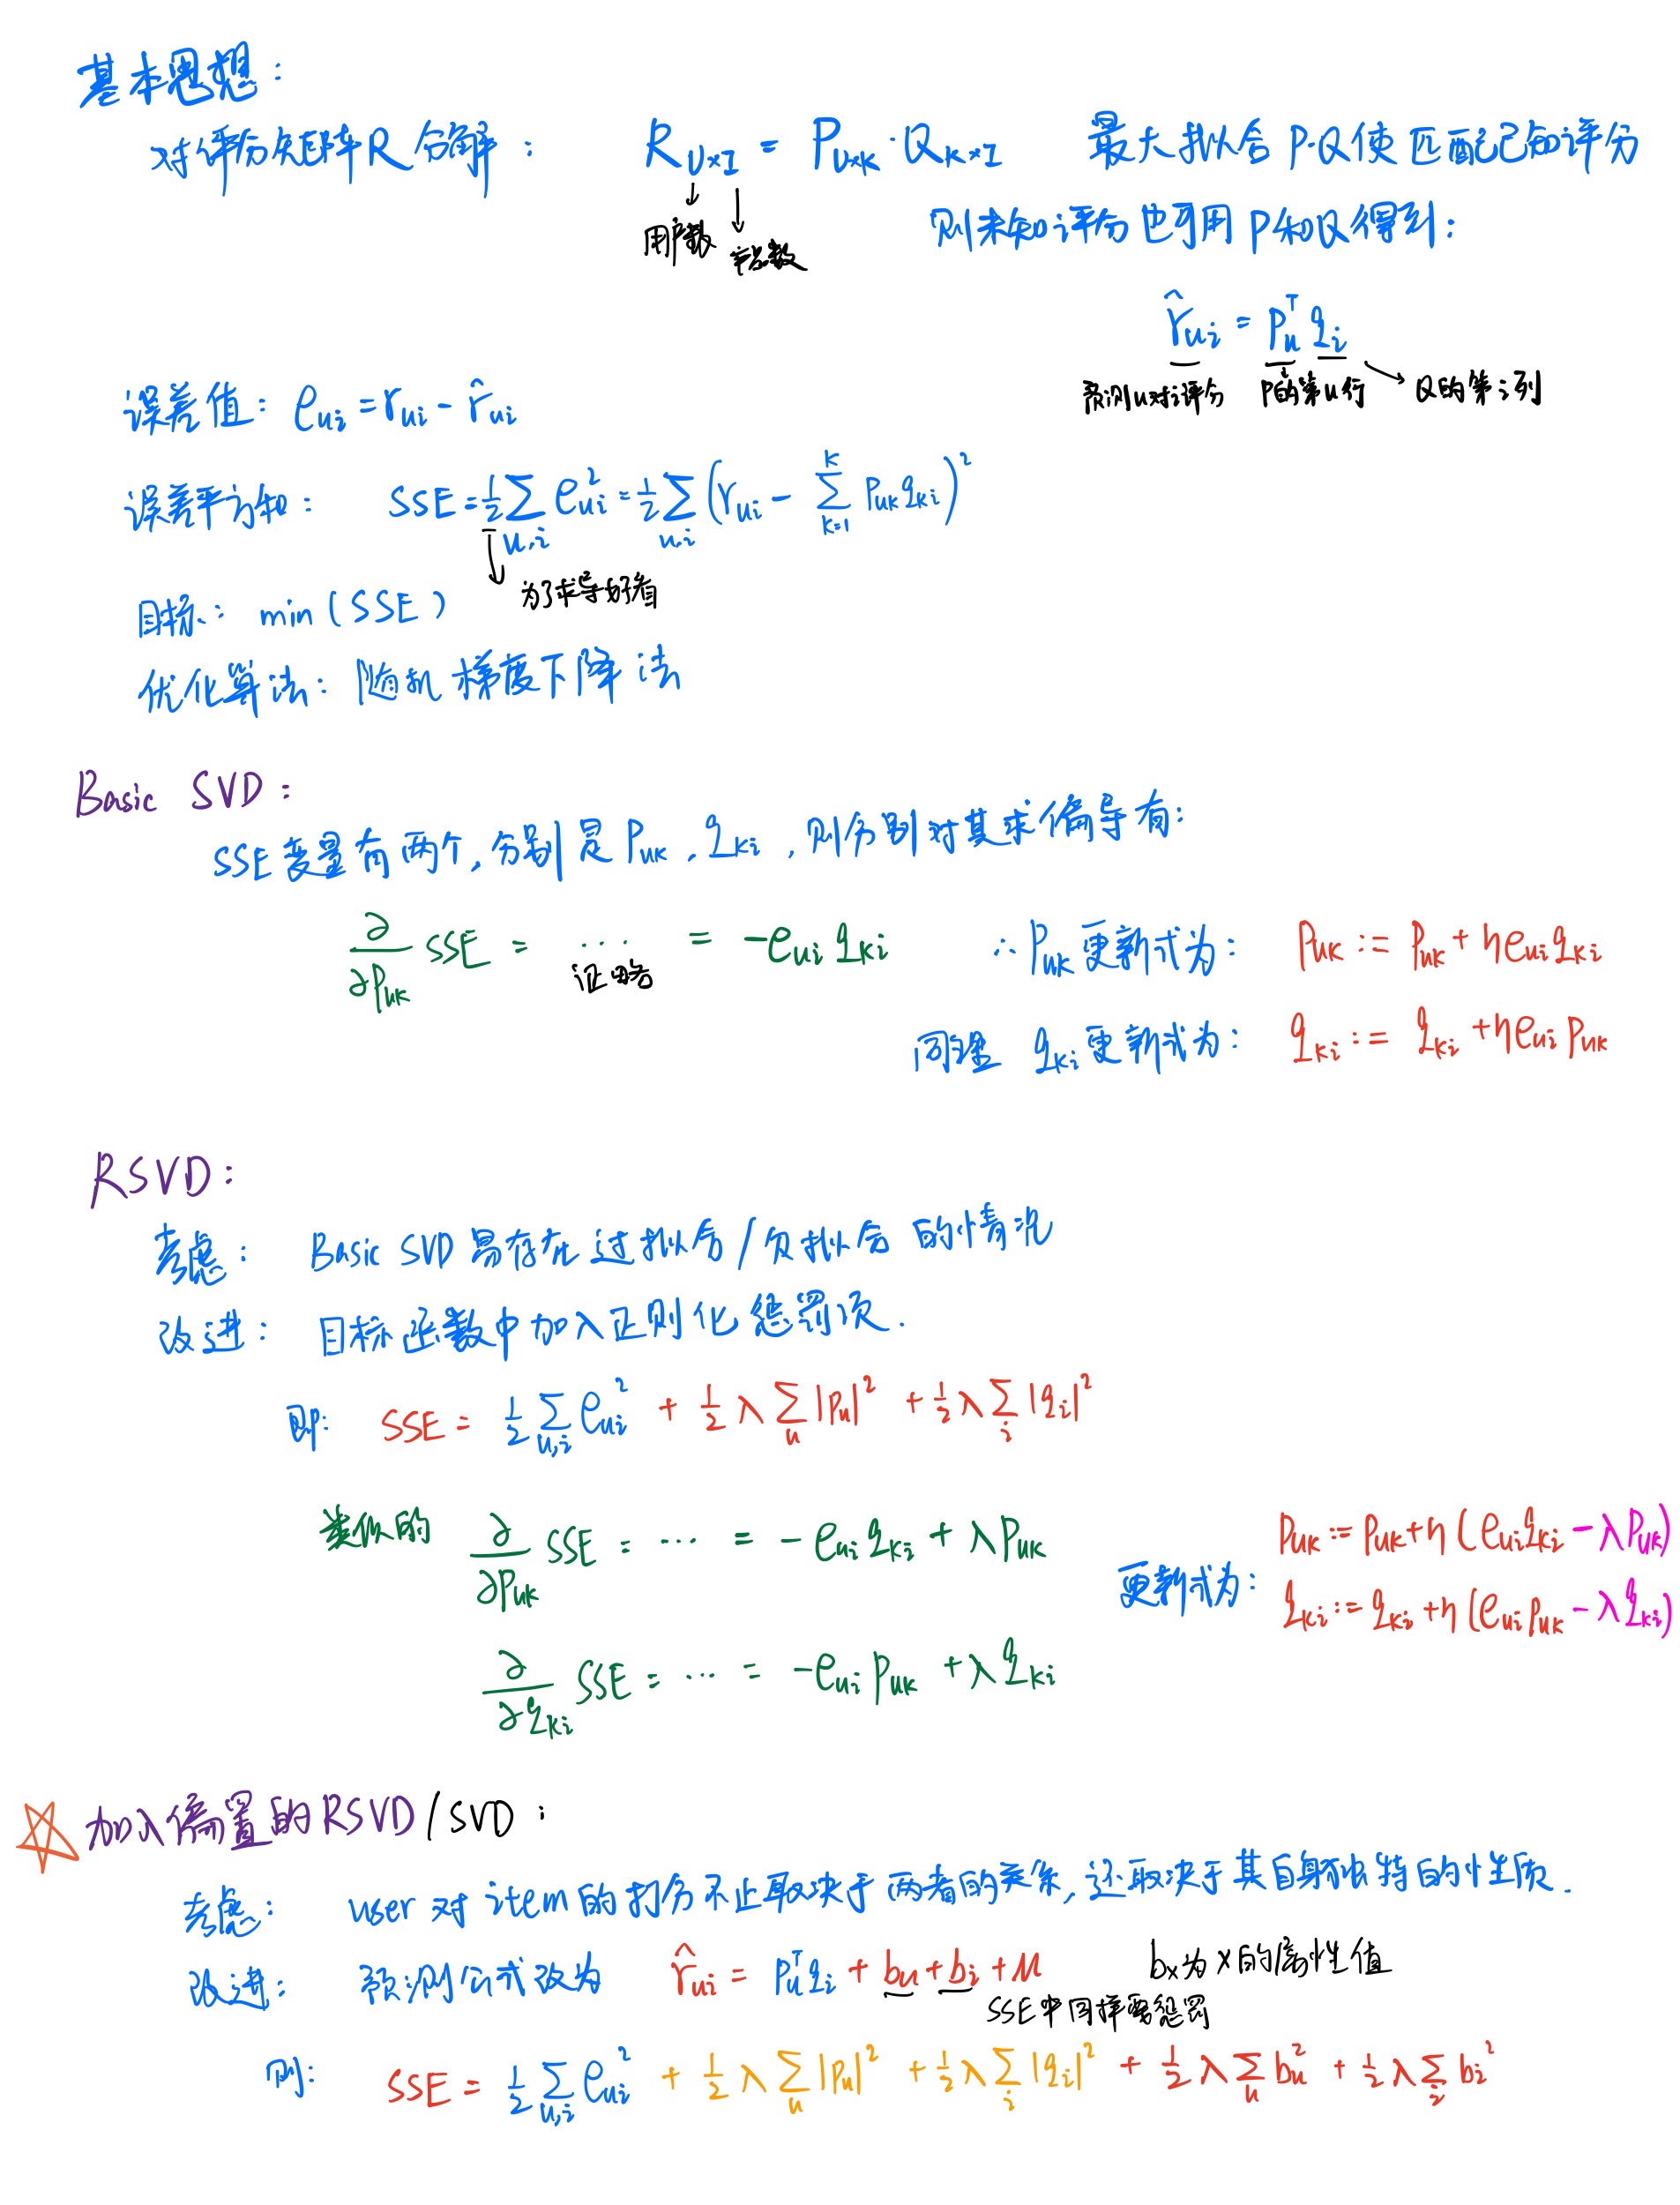 基本思想：
对评分矩阵R分解： R_{U×I} = P_{U×K} · Q_{K×I} 最大拟合 P·Q使匹配已知评分
用户数 产品数 则未知评分也可用P和Q得到：
r̂_{ui} = p_u^T q_i
预测u对i评分 P的第u行 Q的第i列
误差值： e_{ui} = r_{ui} - r̂_{ui}
误差平方和： SSE = 1/2 ∑_{u,i} e_{ui}^2 = 1/2 ∑_{u,i} (r_{ui} - ∑_{k=1}^{K} p_{uk} q_{ki})^2
为了求导好看
目标： min (SSE)
优化算法： 随机梯度下降法
Basic SVD：
SSE变量有两个，分别是 p_{uk}，q_{ki}，则分别对其求偏导有：
∂/∂p_{uk} SSE = ... = -e_{ui} q_{ki} ∴ p_{uk} 更新式为： p_{uk} := p_{uk} + η e_{ui} q_{ki}
证略
同理 q_{ki} 更新式为： q_{ki} := q_{ki} + η e_{ui} p_{uk}
RSVD：
考虑： Basic SVD 易存在过拟合/欠拟合 的情况
改进： 目标函数中加入正则化惩罚项.
即: SSE = 1/2 ∑_{u,i} e_{ui}^2 + 1/2 λ ∑_u |p_u|^2 + 1/2 λ ∑_i |q_i|^2
类似的 ∂/∂p_{uk} SSE = ... = -e_{ui} q_{ki} + λ p_{uk}
更新式为： p_{uk} := p_{uk} + η (e_{ui} q_{ki} - λ p_{uk})
q_{ki} := q_{ki} + η (e_{ui} p_{uk} - λ q_{ki})
∂/∂q_{ki} SSE = ... = -e_{ui} p_{uk} + λ q_{ki}
加入偏置的RSVD/SVD：
考虑： user 对 item 的打分不止取决于两者的关系，还取决于其自身独特的性质.
改进： 预测公式改为 r̂_{ui} = p_u^T q_i + b_u + b_i + μ b_x为x的属性值
SSE中同样要惩罚
则: SSE = 1/2 ∑_{u,i} e_{ui}^2 + 1/2 λ ∑_u |p_u|^2 + 1/2 λ ∑_i |q_i|^2 + 1/2 λ ∑_u b_u^2 + 1/2 λ ∑_i b_i^2